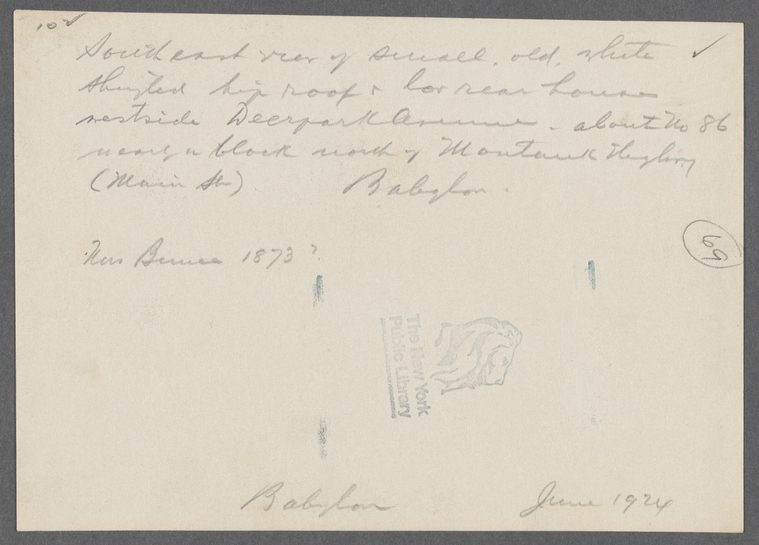 10 ✓
Southeast view of small, old, white ✓
shingled hip roof & low rear house
westside Deerpark Avenue - about No 86
nearly a block north of Montauk Highway
(Main St). Babylon.
69
Mrs 1873?
The New York
Public Library
Babylon June 1924